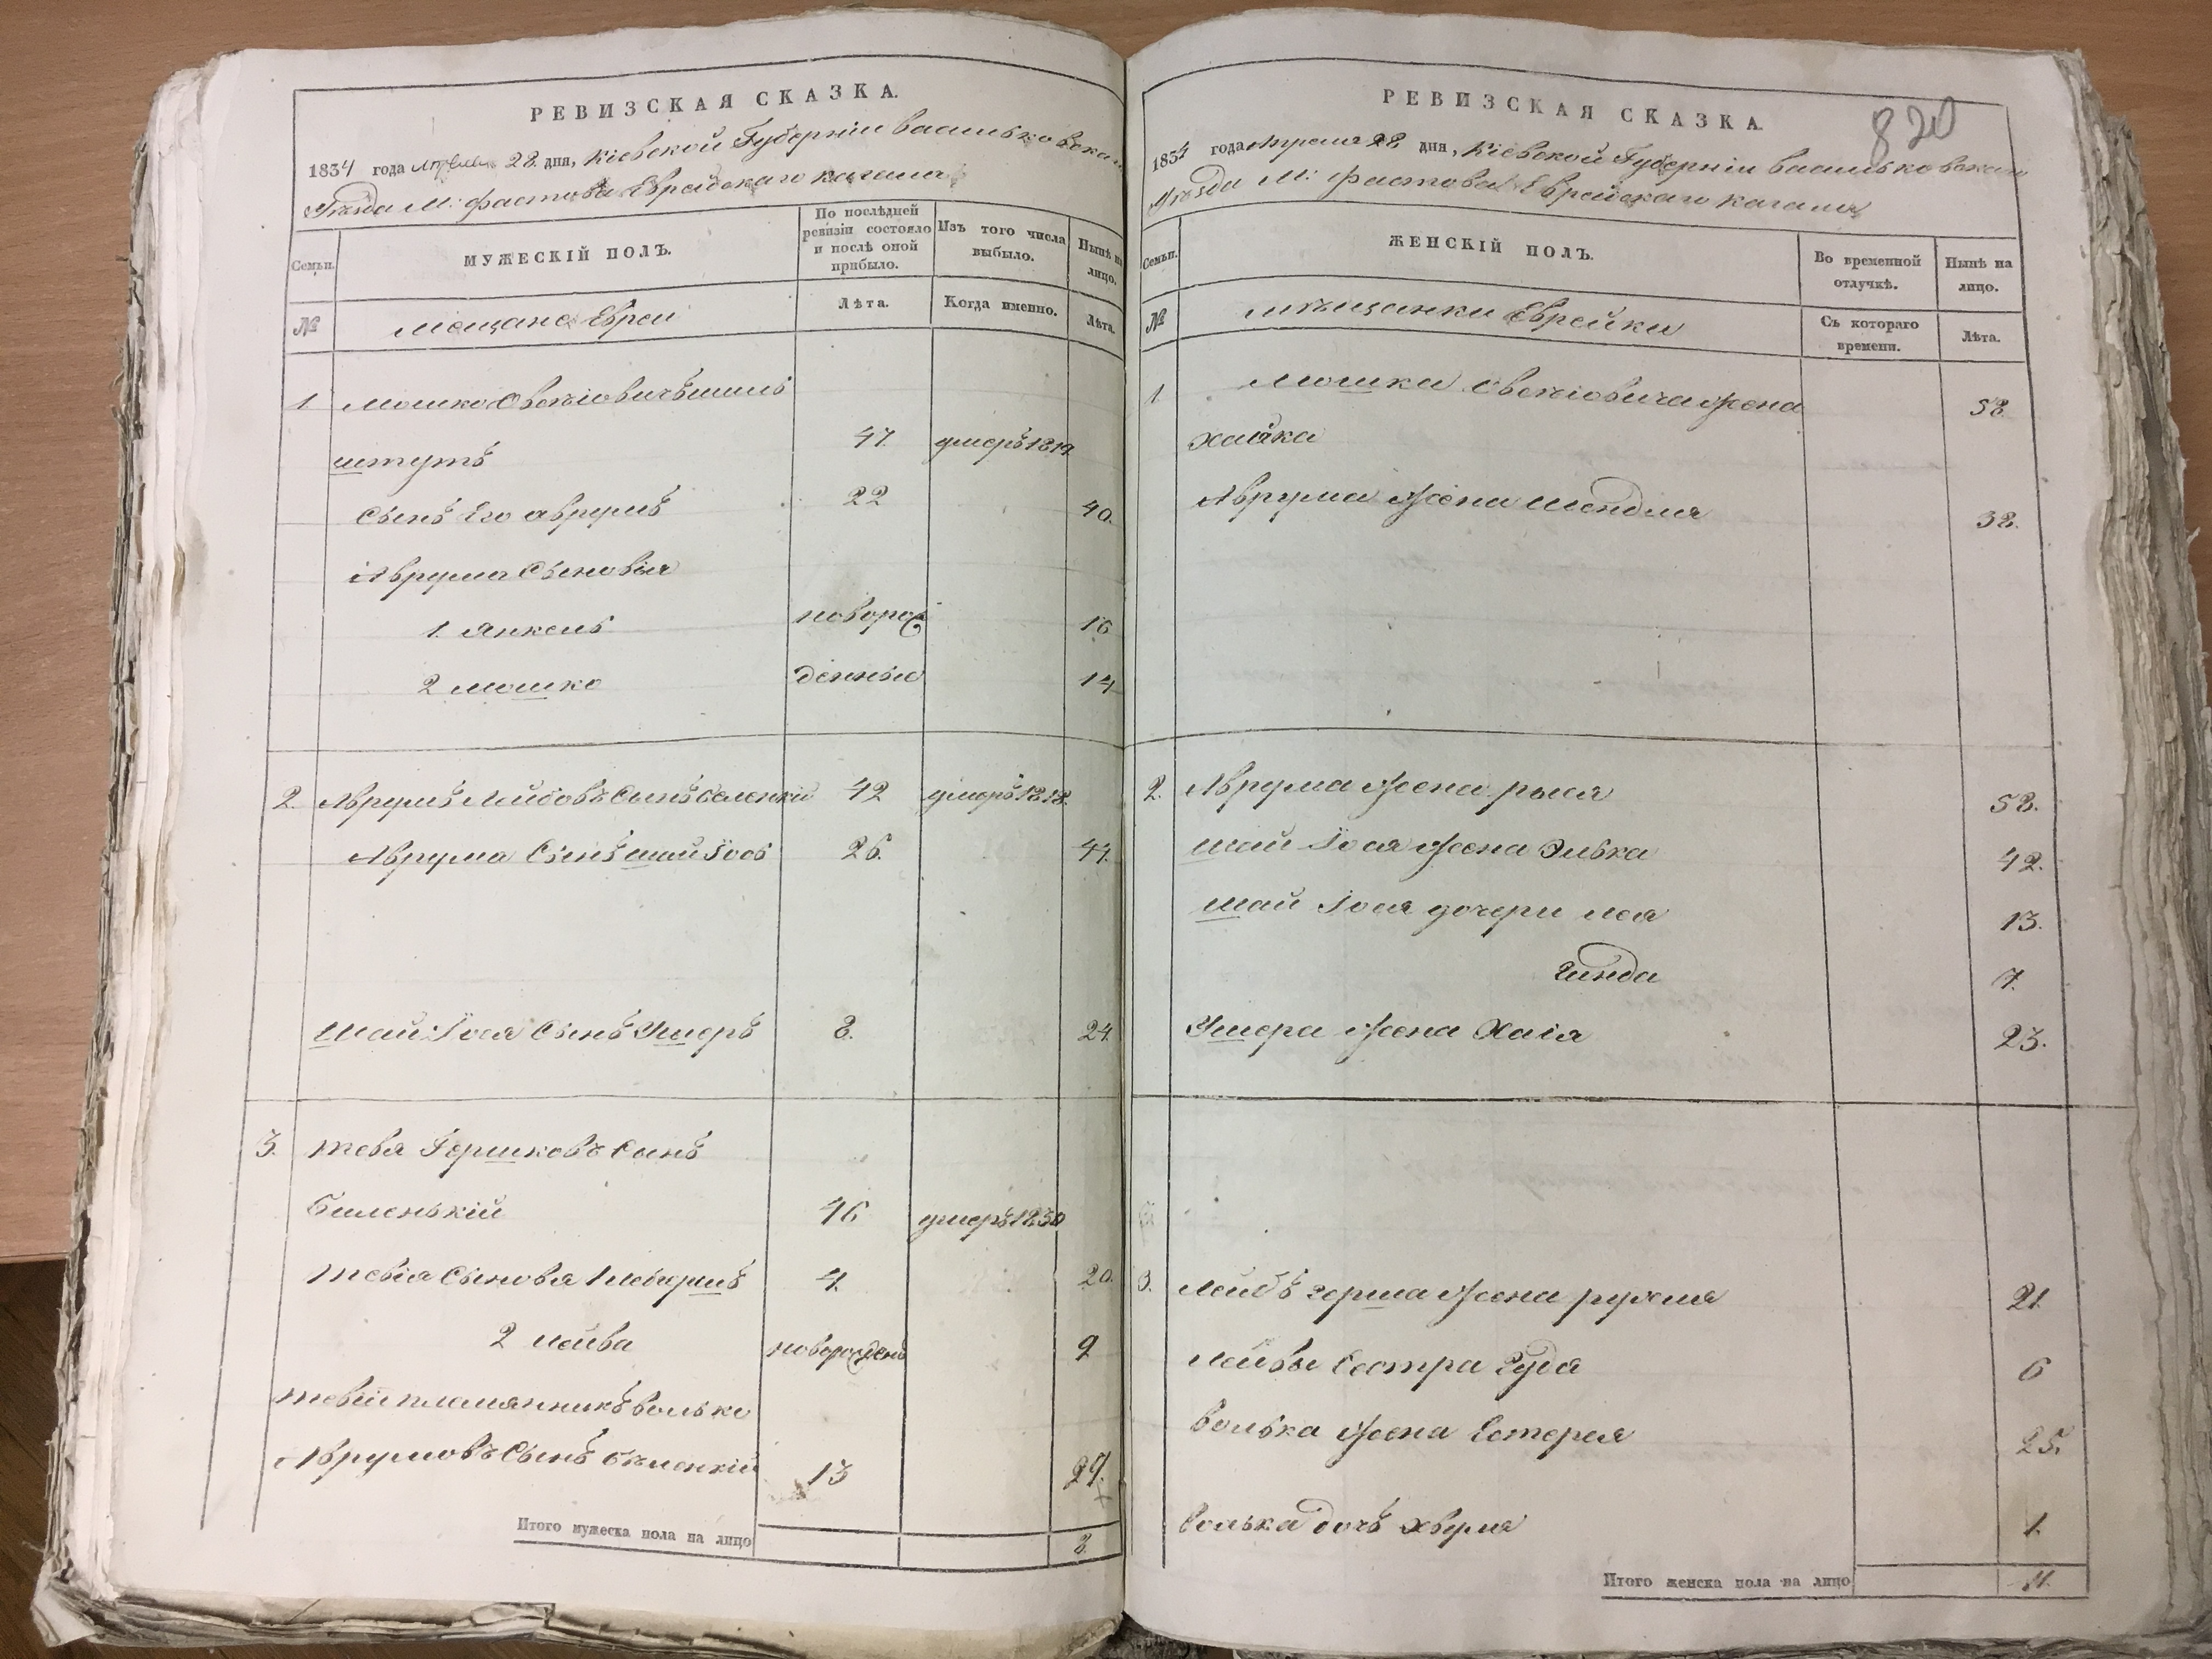 РЕВИЗСКАЯ СКАЗКА.
1834 года Апреля 28 дня, Кіевской Губерніи Васильковскаго
Уѣзда М: Фастова Еврейскаго кагала
Семьи.
МУЖЕСКІЙ ПОЛЪ.
По послѣдней ревизіи состояло и послѣ оной прибыло.
Изъ того числа выбыло.
Нынѣ на лицо.
№
Мещане Евреи
Лѣта.
Когда именно.
Лѣта.
1 Мошко
штутъ 47 умеръ 1819
Сынъ Его Аврумъ 22 40.
Аврума Сыновія
1 Янкель новорож 16
2 Мошко денные 14
2. Аврумъ Лейбовъ Сынъ Беленкій 42 умеръ 1818.
Аврума Сынъ Шай Іось 26. 44.
Шай Іося Сынъ Ушеръ 8. 24.
3. Тевя Гершковъ Сынъ
Биленькій 46 умеръ 1830
Тевія Сыновя 1 Лебгершъ 4. 20.
2 Лейва новорожденъ 9
Тевіи племянникъ Волько
Аврумовъ Сынъ Бѣленкій 13 29.
Итого мужеска пола на лицо 8.
820
РЕВИЗСКАЯ СКАЗКА.
1834 года Апреля 28 дня, Кіевской Губерніи Васильковскаго
Уѣзда М: Фастова Еврейскаго кагала
Семьи.
ЖЕНСКІЙ ПОЛЪ.
Во временной отлучкѣ.
Нынѣ на лицо.
№
Мѣщанки Еврейки
Съ котораго времени.
Лѣта.
1. Мошка жена 58
Хайка
Аврума жена Шендля 38.
2. Аврума жена Рыся 58.
Шай Іося жена Элька 42.
Шай Іося дочери Лея 13.
Гинда 7.
Ушера жена Хаія 23.
3. Лейбъ Герша жена Рухля 21.
Лейвы Сестра Гудя 6
Волька жена Естерея 25.
Волька дочъ Хвеля 1.
Итого женска пола на лицо 11.